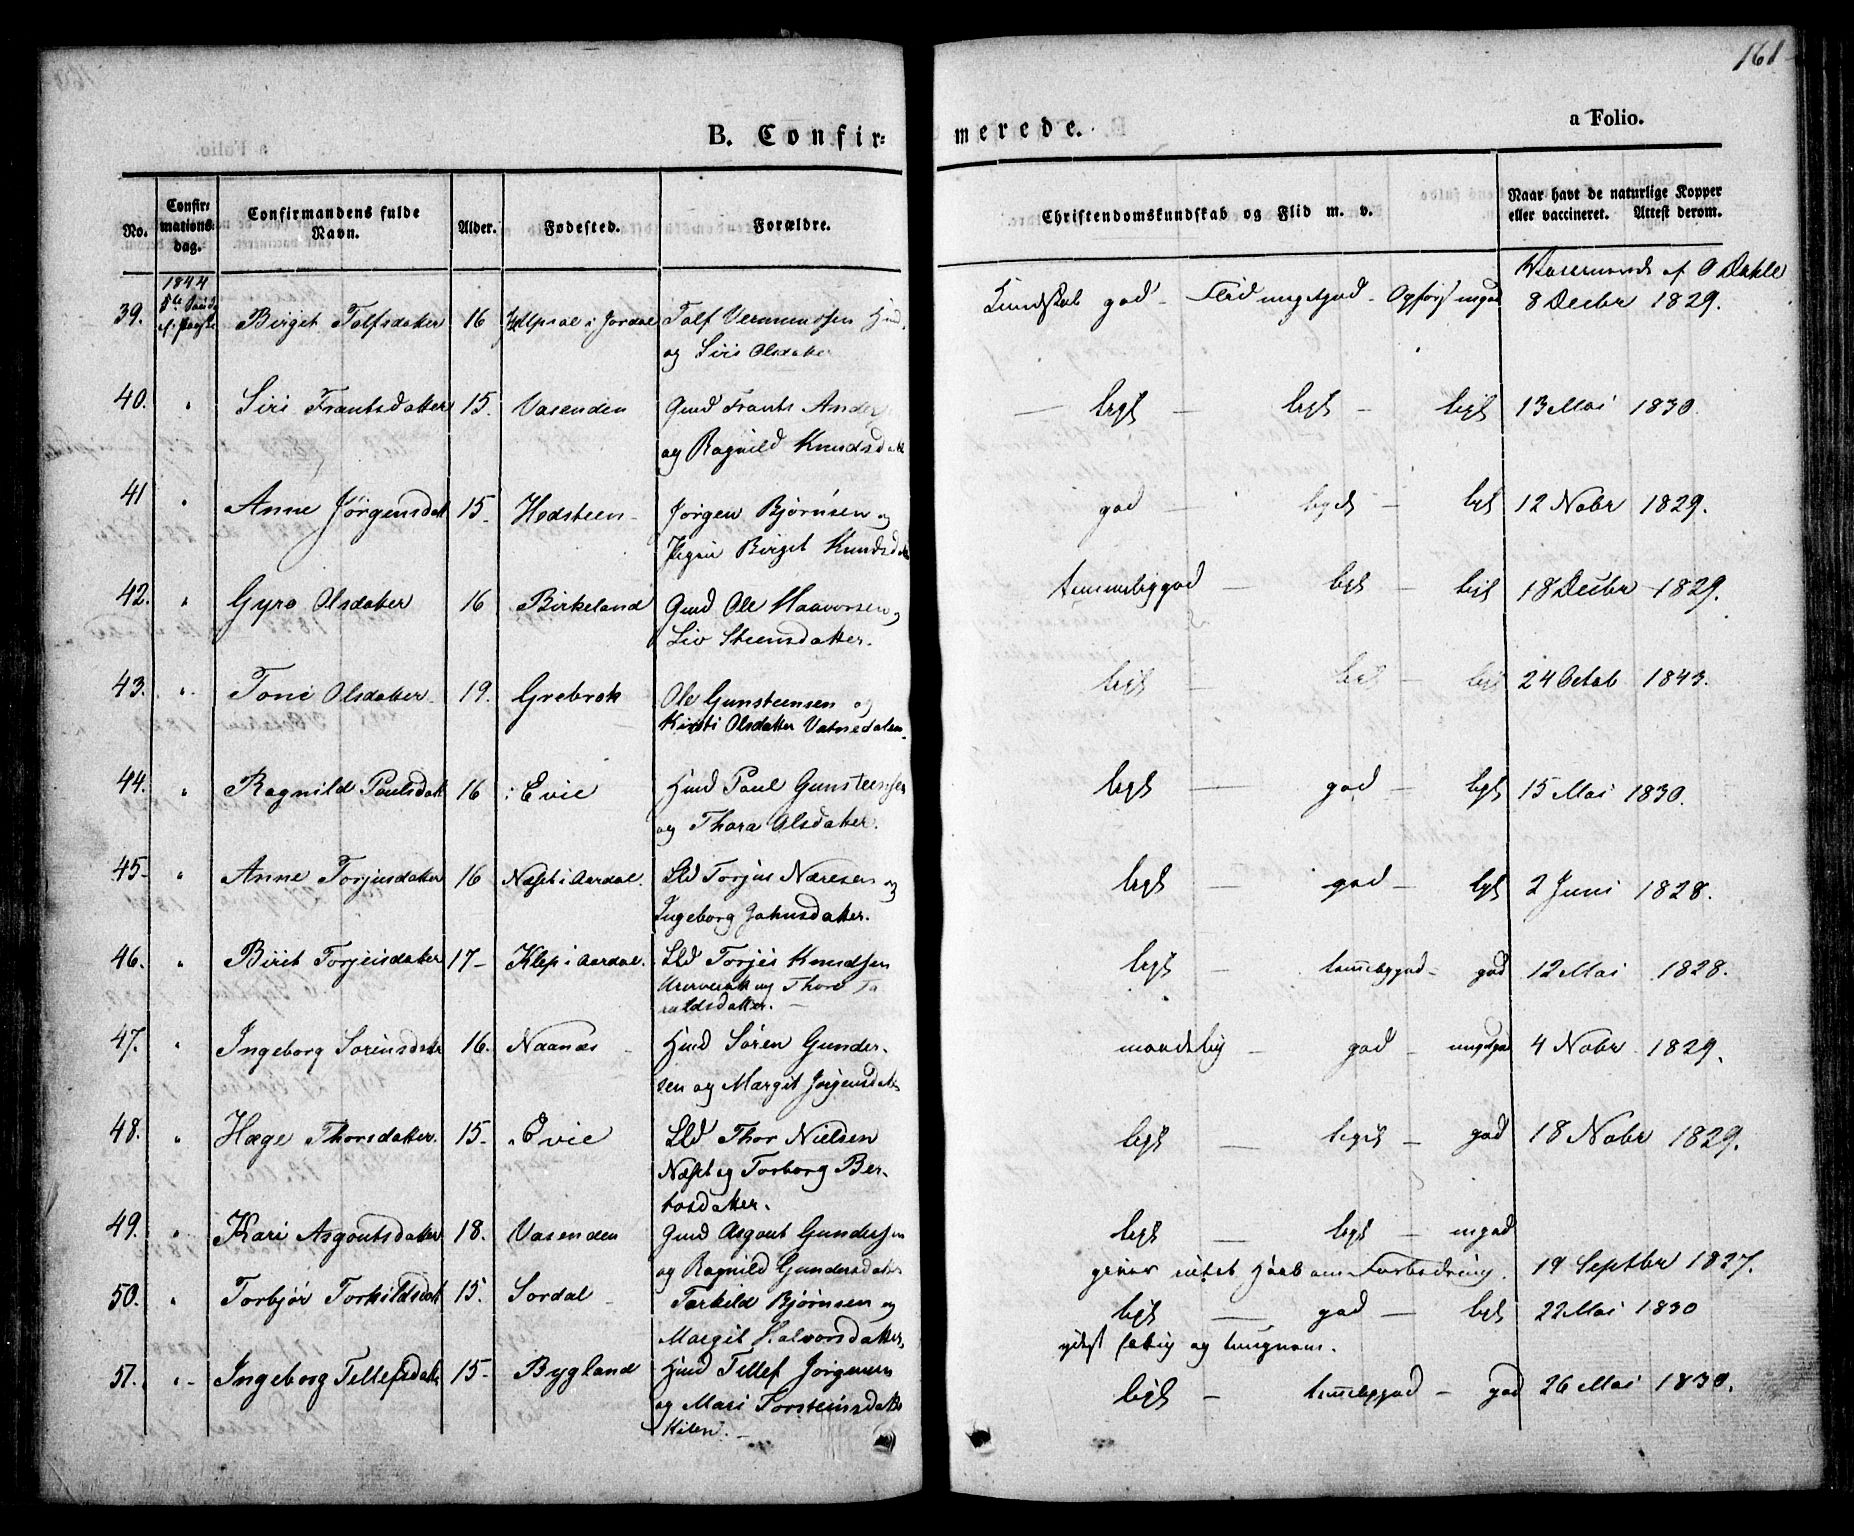 161
a Folio.
B. Confirmerede.
No.
Confirmationsdag.
Confirmandens fulde Navn.
Alder.
Fødested.
Forældre.
Christendomskundskab og Flid m. v.
Naar havt de naturlige Kopper eller vaccineret. Attest derom.
1844
39. Birget Tolfsdatter 16 Jordal Tolf
og Siri Olsdatter
Kundskab god - Flid megetgod - Opførs. megod
af O Dahle
8 Decbr 1829.
40. " Siri Frantsdatter 15. Vasenden Gmd Frants Ander
og Ragnild Knudsdatt
— ligs — ligs — ligs 13 Mai 1830.
41 " Anne Jørgensdatt 15. Hodsteen - Jørgen Bjørnsen og
Pigen Birget Knudsdatt
god — ligs — ligs 12 Nobr 1829.
42. " Gyro Olsdatter 16 Birkeland Gmd Ole Haavorsen og
Liv Steensdatter.
temmeliggod — ligs — ligs 18 Decbr 1829.
43. " Tone Olsdatter 19. Grebrok Ole Gunsteensen og
Kirsti Olsdatter Vatnedalen
ligs — ligs — ligs 24 Octob 1843.
44. " Ragnild Paulsdatt 16 : Evie Hmd Paul Gunsteensen
og Thora Olsdatter.
ligs — god — ligs 15 Mai 1830.
45- " Anne Torjusdatter 16 Næset i Aardal. Lld Torjus Næresen og
Ingeborg Johnsdatter.
ligs — god — ligs 2 Juni 1828.
46. " Birit Torjeisdatter 17- Klep i Aardal. Lld Torjes Knudsen
og Thore Ta
raldsdatter. —
ligs — temeliggod - god 12 Mai 1828.
47. " Ingeborg Sørensdatter 16. Naanes - Hmd Søren Gunder-
sen og Margit Jørgensdatter
maadelig — god — megetgod 4 Nobr 1829.
48. " Hæge Thorsdatter. 15- Evie Lld Thor Nielsen
Næset og Torborg Ber-
tosdatter.
ligs — ligs — god 18 Nobr 1829.
49. " Kari Asgoutsdatter 18. Vasenden Gmd Asgout Gundersen
og Ragnild Gundersdatter
ligs — ligs — megod
giver intet Haab om Forbedring. 19 Septbr 1827.
50. " Torbjør Torkildsdatt 15. Sordal - Torkild Bjørnsen og
Margit Halvorsdatter,
ligs — god — ligs 22 Mai 1830
yderst fattig og
51. " - Ingeborg Tellefsdatter 15- Bygland Hmd Tellef Jørgensen
og Mari Torsteinsdatter
Kilen. -
ligs — temeliggod — god 26 Mai 1830.